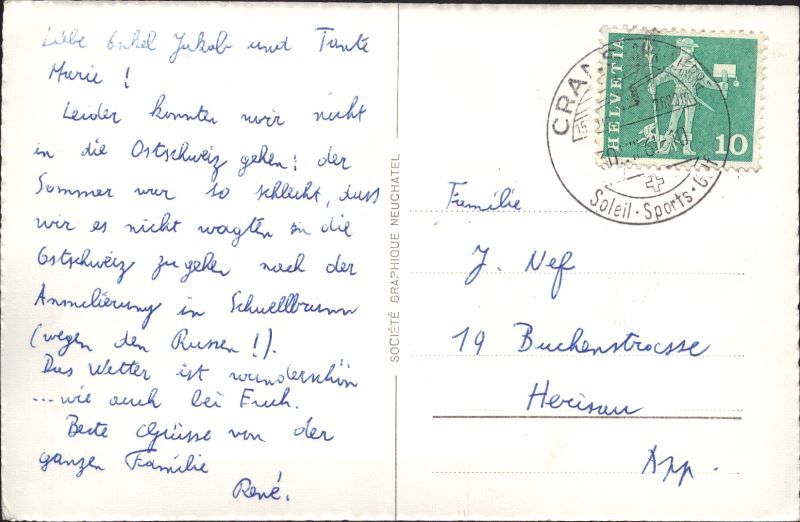 Liebe Onkel Jakob und Tante
Marie !
Leider konnten wir nicht
in die Ostschweiz gehen: der
Sommer war so schlecht, dass
wir es nicht wagten in die
Ostschweiz zu gehen nach der
in Schwellbrunn
(wegen den Russen !).
Das Wetter ist wunderschön
... wie auch bei Euch.
Beste Grüsse von der
ganzen Familie
René.
SOCIÉTÉ GRAPHIQUE NEUCHATEL
CRANS
Soleil · Sports · Golf
HELVETIA
10
Familie
J. Nef
19 Buchenstrasse
Herisau
App.